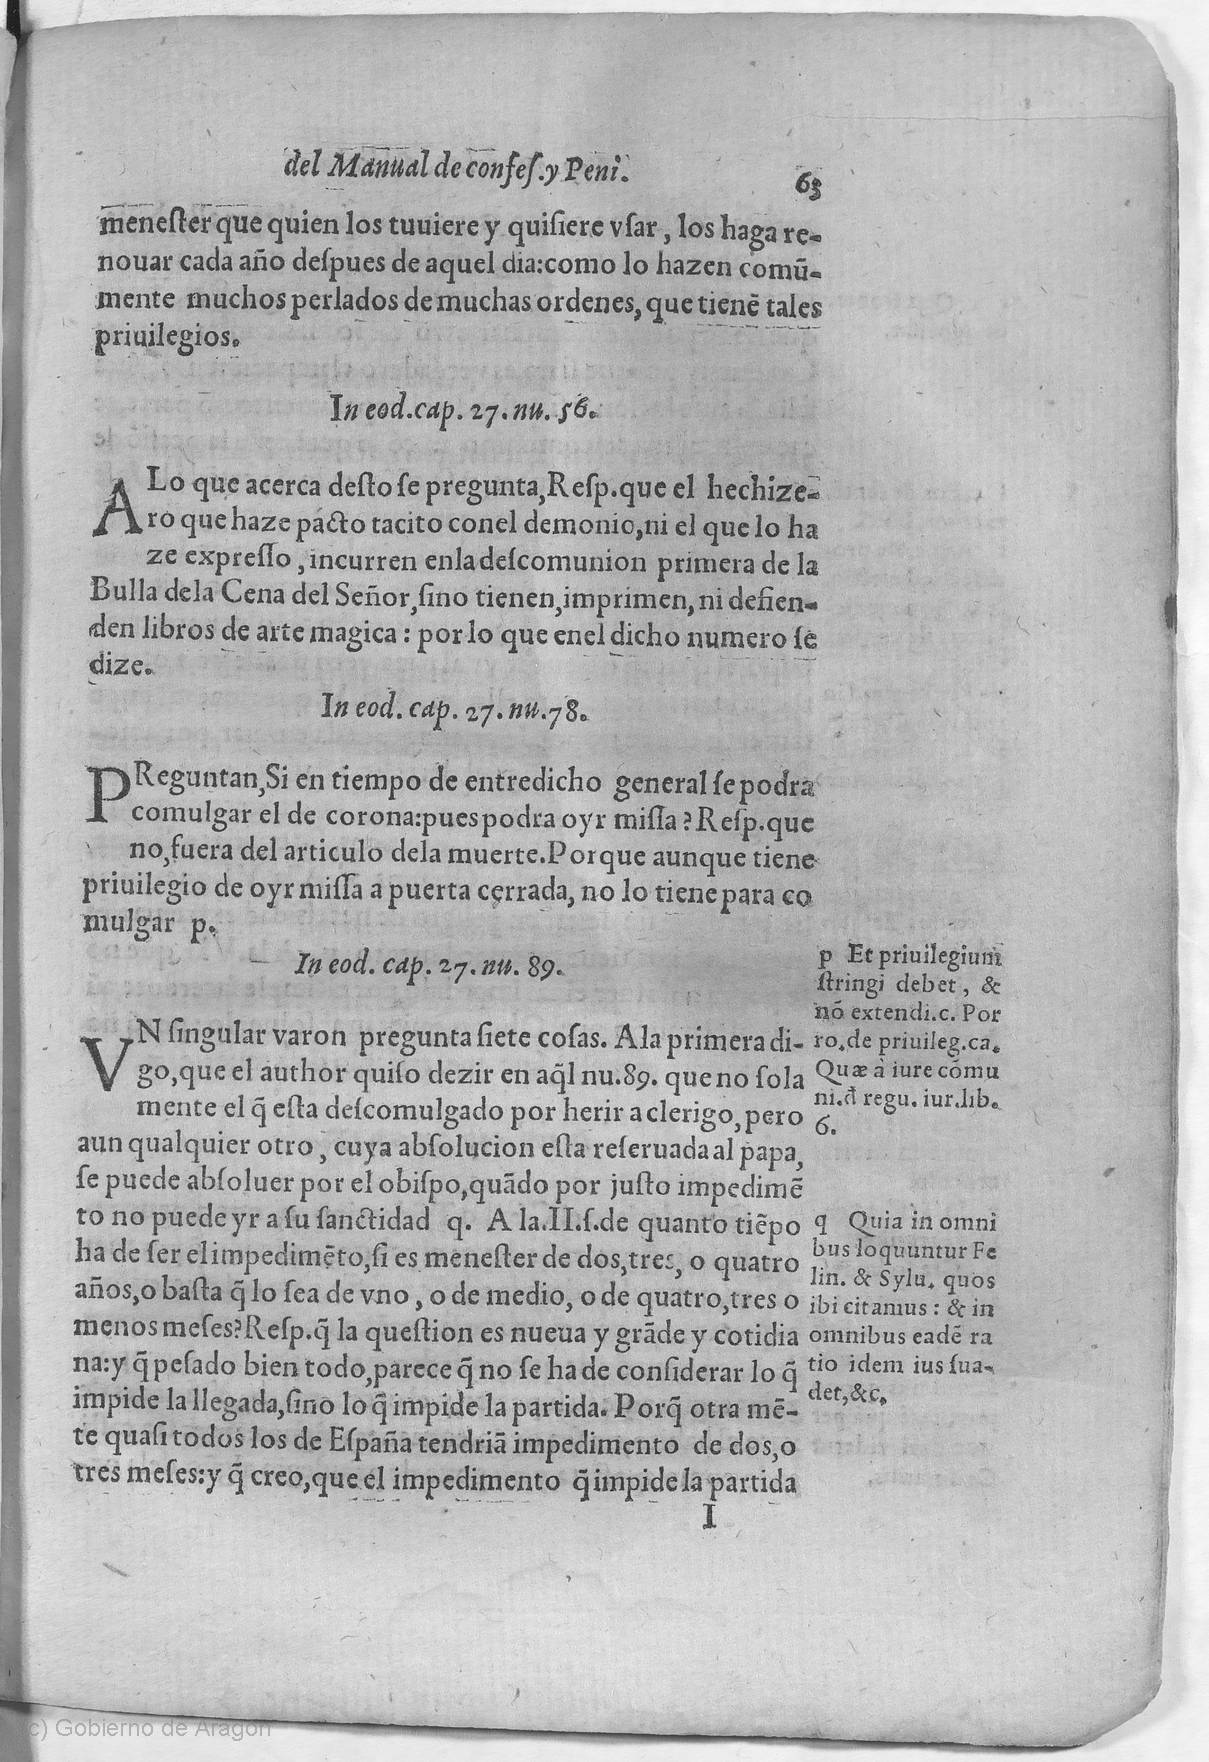 del Manual de confeſ.y Peni.
63
meneſter que quien los tuuiere y quiſiere vſar, los haga re-
nouar cada año deſpues de aquel dia:como lo hazen comũ-
mente muchos perlados de muchas ordenes, que tienẽ tales
priuilegios.
In eod.cap. 27.nu. 56.
A Lo que acerca deſto ſe pregunta,Reſp.que el hechize-
ro que haze pacto tacito conel demonio,ni el que lo ha
ze expreſſo, incurren enla deſcomunion primera de la
Bulla dela Cena del Señor,ſino tienen,imprimen, ni defien-
den libros de arte magica: por lo que enel dicho numero ſe
dize.
In eod. cap. 27.nu.78.
PReguntan,Si en tiempo de entredicho general ſe podra
comulgar el de corona:pues podra oyr miſſa? Reſp.que
no,fuera del articulo dela muerte.Porque aunque tiene
priuilegio de oyr miſſa a puerta cerrada, no lo tiene para co
mulgar p.
In eod. cap. 27.nu. 89.
VN ſingular varon pregunta ſiete coſas. A la primera di-
go,que el author quiſo dezir en aq̃l nu.89. que no ſola
mente el q̃ eſta deſcomulgado por herir a clerigo, pero
aun qualquier otro, cuya abſolucion eſta reſeruada al papa,
ſe puede abſoluer por el obiſpo,quãdo por juſto impedimẽ
to no puede yr a ſu ſanctidad q. A la.II.ſ.de quanto tiẽpo
ha de ſer el impedimẽto,ſi es meneſter de dos,tres, o quatro
años,o baſta q̃ lo ſea de vno, o de medio, o de quatro,tres o
menos meſes?Reſp.q̃ la queſtion es nueua y grãde y cotidia
na:y q̃ peſado bien todo,parece q̃ no ſe ha de conſiderar lo q̃
impide la llegada,ſino lo q̃ impide la partida. Porq̃ otra mẽ-
te quaſi todos los de Eſpaña tendriã impedimento de dos,o
tres meſes:y q̃ creo,que el impedimento q̃ impide la partida
I
p Et priuilegium
ſtringi debet, &
nõ extendi.c. Por
ro.de priuileg.ca.
Quæ à iure cõmu
ni.đ regu. iur.lib.
6.
q Quia in omni
bus loquuntur Fe
lin. & Sylu. quos
ibi citamus: & in
omnibus eadẽ ra
tio idem ius ſua-
det,&c.
(c) Gobierno de Aragón